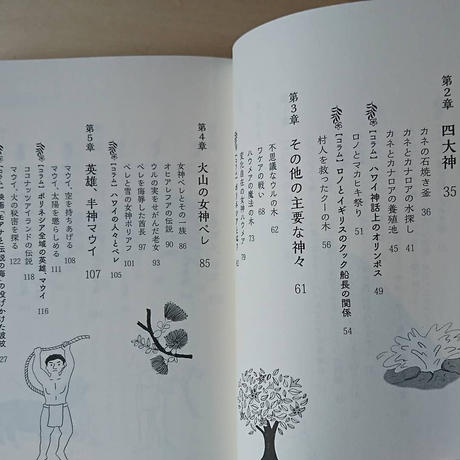 第2章 四大神 35
カネの石焼き釜 36
カネとカナロアの水探し 41
カネとカナロアの養殖池 45
【コラム】ハワイ神話上のオリンポス 49
ロノとマカヒキ祭り 51
【コラム】ロノとイギリスのクック船長の関係 54
村人を救ったクーの木 56
第3章 その他の主要な神々 61
不思議なウルの木 62
ワケアの戦い 68
ハウメアの魔法の木 73
変化自在の女神ハウメア 79
第4章 火山の女神ペレ 85
女神ペレとその一族 86
オヒアレフアの伝説 90
ウルの実をせがんだ老女 93
ペレを侮辱した酋長 97
ペレと雪の女神ポリアフ 101
【コラム】ハワイの人々とペレ 105
第5章 英雄、半神マウイ 107
マウイ、空を持ちあげる 108
マウイ、太陽を懲らしめる 111
【コラム】ポリネシア全域の英雄、マウイ 116
ココナッツアイランドの伝説 118
マウイ、火の秘密を得る 122